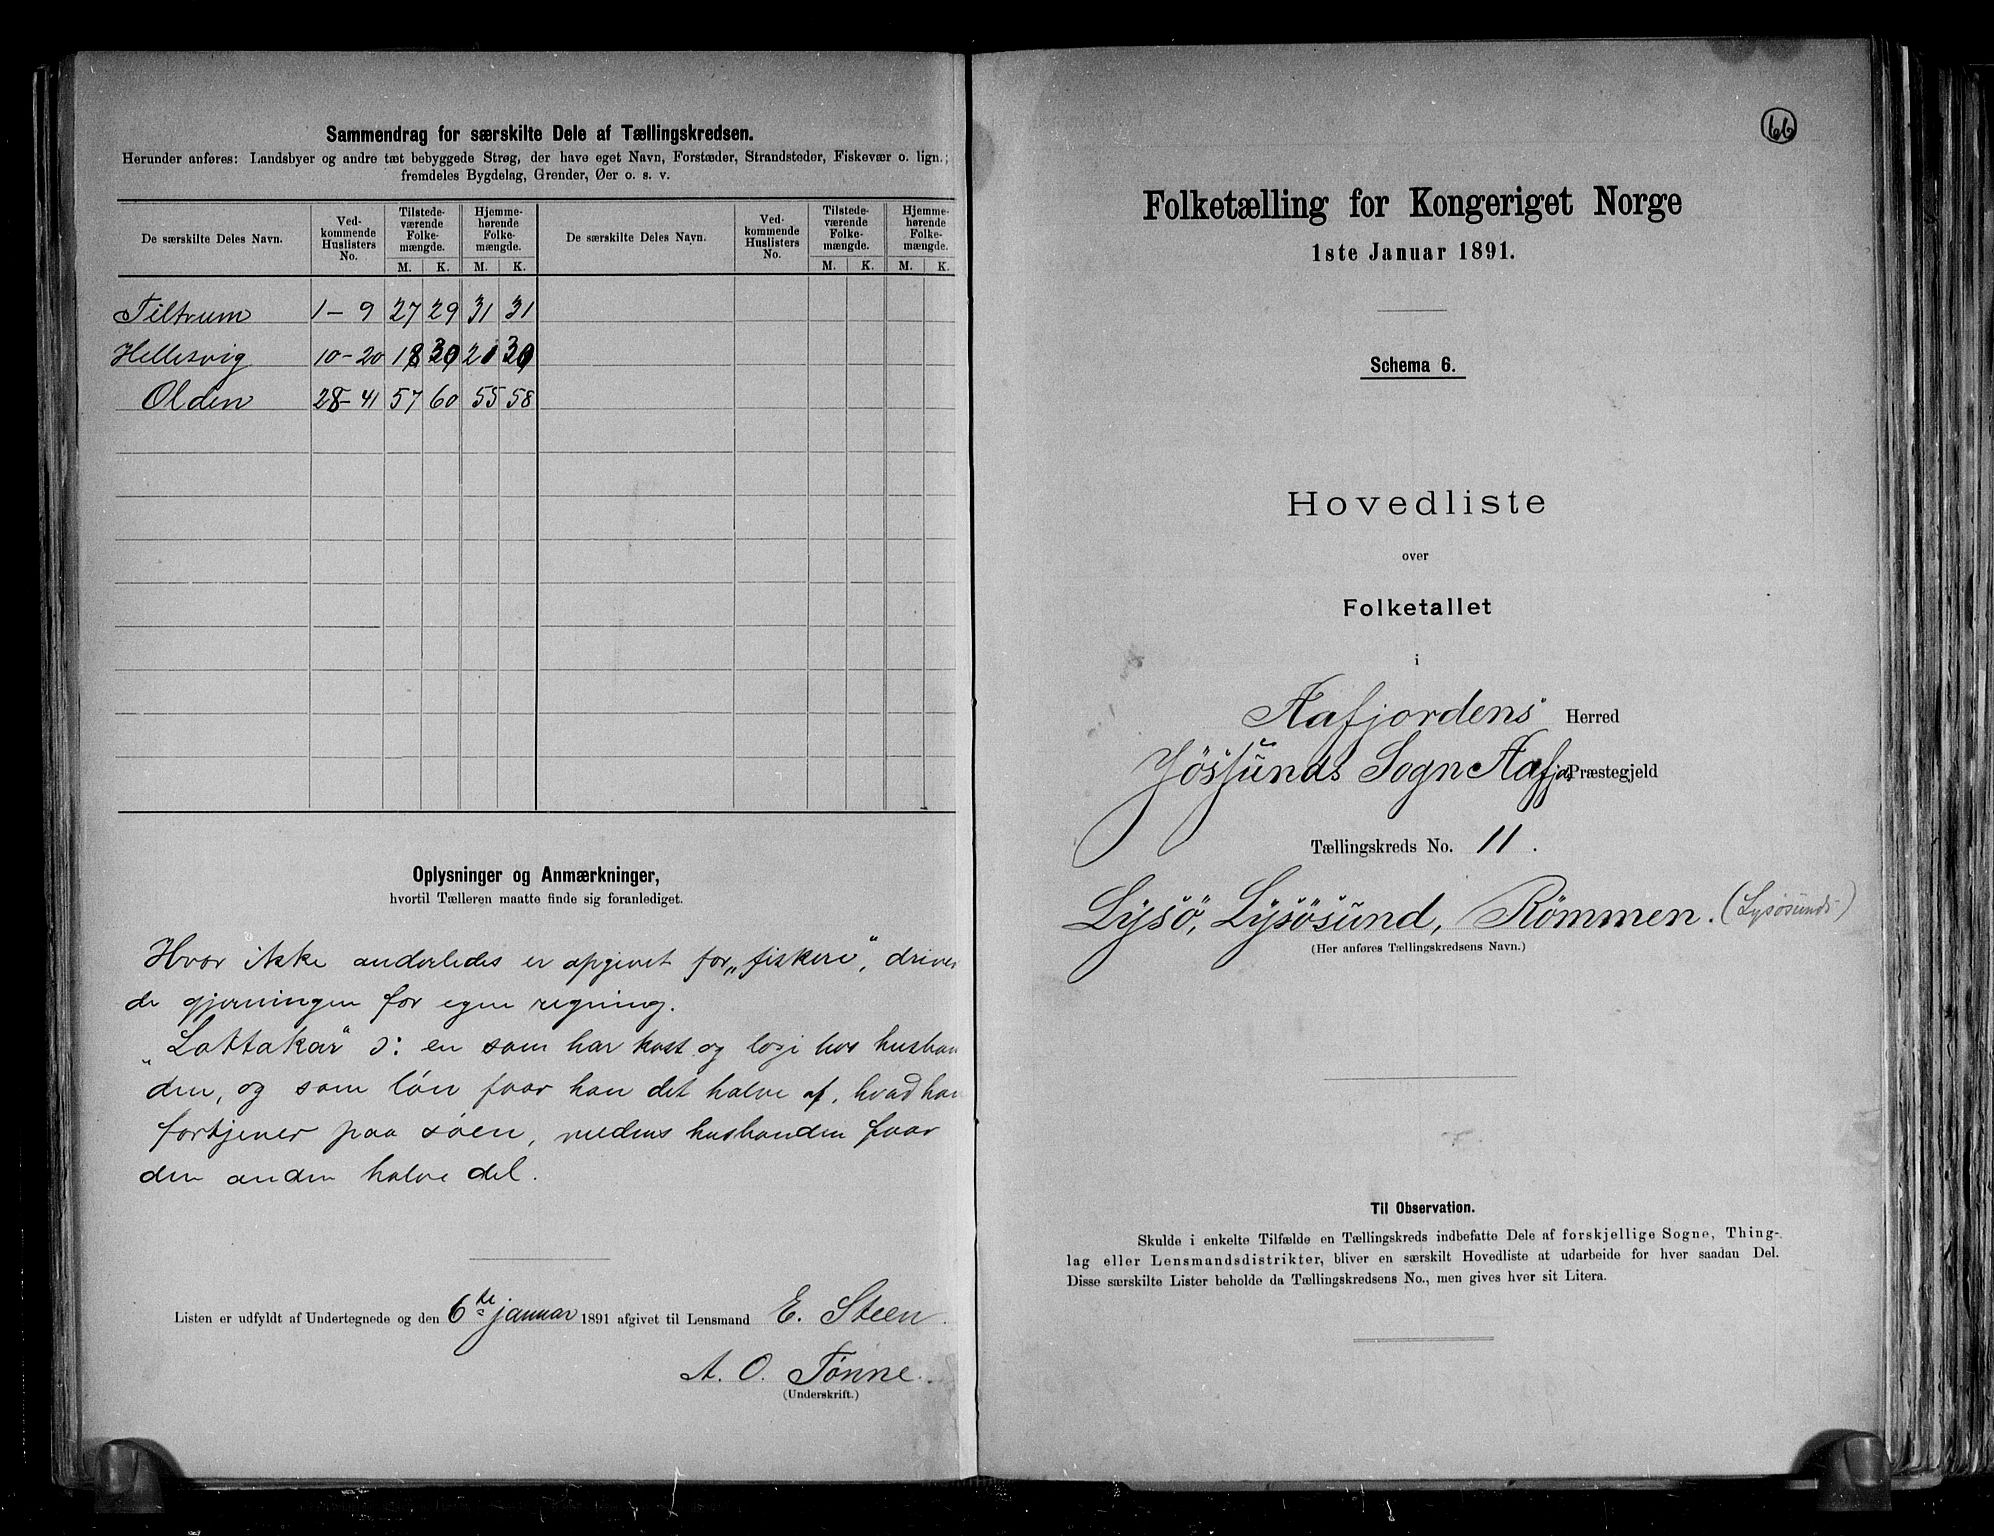 Sammendrag for særskilte Dele af Tællingskredsen.
Herunder anføres: Landsbyer og andre tæt bebyggede Strøg, der have eget Navn, Forstæder, Strandsteder, Fiskevær o. lign.;
fremdeles Bygdelag, Grender, Øer o. s. v.
De særskilte Deles Navn. Ved-kommende Huslisters No. Tilstede-værende Folke-mængde. Hjemme-hørende Folke-mængde. De særskilte Deles Navn. Ved-kommende Huslisters No. Tilstede-værende Folke-mængde. Hjemme-hørende Folke-mængde.
M. K. M. K. M. K. M. K.
Tiltrum 1-9 27 29 31 31
Hellesvig 10-20
Olden 28-41 57 60 55 58
Oplysninger og Anmærkninger,
hvortil Tælleren maatte finde sig foranlediget.
Hvor ikke anderledes er opgivet for „fiskere", driver
de gjerningen for egen regning.
„Lottakar" ɔ: en som har kost og logi hos husban
den, og som løn faar han det halve af, hvad han
fortjener paa søen, medens husbonden faar
den anden halve del.
Listen er udfyldt af Undertegnede og den 6te januar 1891 afgivet til Lensmand E. Steen.
A. O. Tønne.
(Underskrift.)
66
Folketælling for Kongeriget Norge
1ste Januar 1891.
Schema 6.
Hovedliste
over
Folketallet
i
Aafjordens Herred
Jössunds Sogn Aafjd Præstegjeld
Tællingskreds No. 11.
Lysö, Lysösund, Römmen. (Lysøsund)
(Her anføres Tællingskredsens Navn.)
Til Observation.
Skulde i enkelte Tilfælde en Tællingskreds indbefatte Dele af forskjellige Sogne, Thing-
lag eller Lensmandsdistrikter, bliver en særskilt Hovedliste at udarbeide for hver saadan Del.
Disse særskilte Lister beholde da Tællingskredsens No., men gives hver sit Litera.